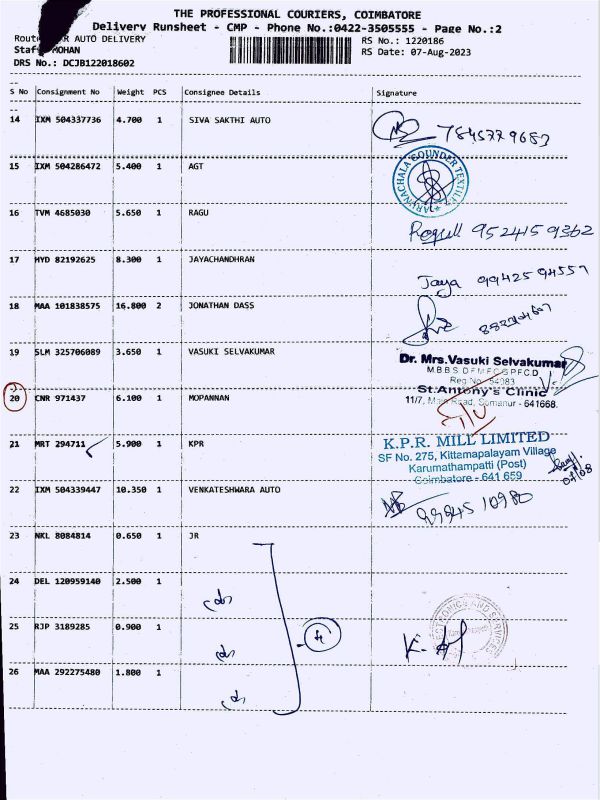 THE PROFESSIONAL COURIERS, COIMBATORE
Delivery Runsheet - CMP - Phone No.:0422-3505555 - Page No.:2
AUTO DELIVERY
RS No.: 1220186
MOHAN
RS Date: 07-Aug-2023
DRS No.: DCJB122018602
S No Consignment No Weight PCS Consignee Details Signature
14 IXM 504337736 4.700 1 SIVA SAKTHI AUTO
7845779683
15 IXM 504286472 5.400 1 AGT
ARUNACHALA GOUNDER TEXTILE
16 TVM 4685030 5.650 1 RAGU
9524159362
17 HYD 82192625 8.300 1 JAYACHANDHRAN
Jaya 9942594557
18 MAA 101838575 16.800 2 JONATHAN DASS
19 SLM 325706089 3.650 1 VASUKI SELVAKUMAR
Dr. Mrs.Vasuki Selvakumar
Reg No 54983
St.Antony's Clinic
11/7, Main Road, Somanur - 641668.
20 CNR 971437 6.100 1 MOPANNAN
21 MRT 294711 5.900 1 KPR
K.P.R. MILL LIMITED
SF No. 275, Kittamapalayam Village
Karumathampatti (Post)
Coimbatore - 641 659
07/08
22 IXM 504339447 10.350 1 VENKATESHWARA AUTO
9994510980
23 NKL 8084814 0.650 1 JR
24 DEL 120959140 2.500 1
25 RJP 3189285 0.900 1
26 MAA 292275480 1.800 1